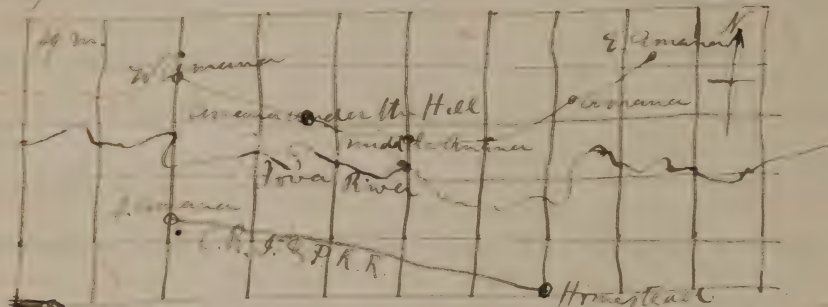 E. Amana N
W. Amana
Amana under the Hill Amana
middle Amana
Iowa River
S. Amana
C. R. I. & P. R. R.
Homestead